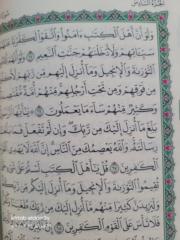 الجزء السادس
وَلَوْ أَنَّ أَهْلَ ٱلْكِتَٰبِ ءَامَنُوا۟ وَٱتَّقَوْا۟ لَكَفَّرْنَا
سَيِّـَٔاتِهِمْ وَلَأَدْخَلْنَٰهُمْ جَنَّٰتِ ٱلنَّعِيمِ
ٱلتَّوْرَىٰةَ وَٱلْإِنجِيلَ وَمَآ أُنزِلَ إِلَيْهِم مِّن رَّبِّهِمْ
مِن فَوْقِهِمْ وَمِن تَحْتِ أَرْجُلِهِم مِّنْهُمْ أُمَّةٌ
وَكَثِيرٌ مِّنْهُمْ سَآءَ مَا يَعْمَلُونَ
بَلِّغْ مَآ أُنزِلَ إِلَيْكَ مِن رَّبِّكَ وَإِن لَّمْ تَفْعَلْ فَمَا
رِسَالَتَهُۥ وَٱللَّهُ يَعْصِمُكَ مِنَ ٱلنَّاسِ إِنَّ ٱللَّهَ
ٱلْكَٰفِرِينَ قُلْ يَٰٓأَهْلَ ٱلْكِتَٰبِ لَسْتُمْ عَلَىٰ شَىْءٍ
تُقِيمُوا۟ ٱلتَّوْرَىٰةَ وَٱلْإِنجِيلَ وَمَآ أُنزِلَ إِلَيْكُم مِّن
وَلَيَزِيدَنَّ كَثِيرًا مِّنْهُم مَّآ أُنزِلَ إِلَيْكَ مِن رَّبِّكَ
فَلَا تَأْسَ عَلَى ٱلْقَوْمِ ٱلْكَٰفِرِينَ